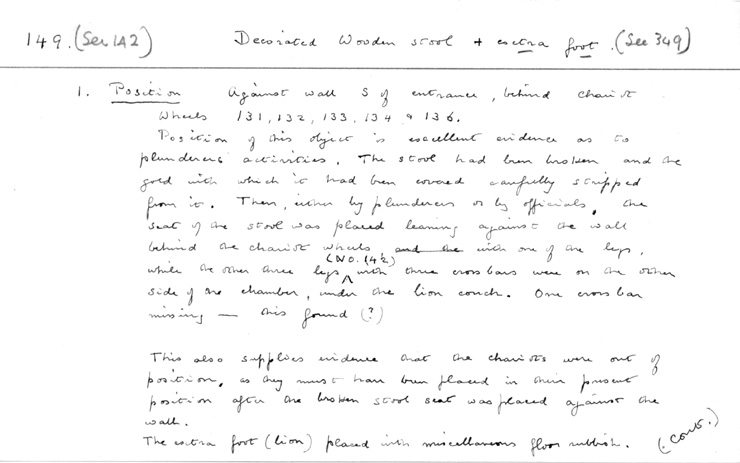 149. (See 142) Decorated Wooden stool + extra foot. (See 349)
1. Position Against wall S of entrance, behind chariot
Wheels 131, 132, 133, 134 & 136.
Position of this object is excellent evidence as to
plunderers' activities. The stool had been broken and the
gold with which it had been covered carefully stripped
from it. Then, either by plunderers or by officials, the
seat of the stool was placed leaning against the wall
behind the chariot wheels and the with one of the legs,
(NO. 142)
while the other three legs with three cross bars were on the other
side of the chamber, under the lion couch. One cross bar
missing — this found (?)
This also supplies evidence that the chariots were out of
position, as they must have been placed in their present
position after the broken stool seat was placed against the
wall.
The extra foot (lion) placed with miscellaneous floor rubbish. (cont.)